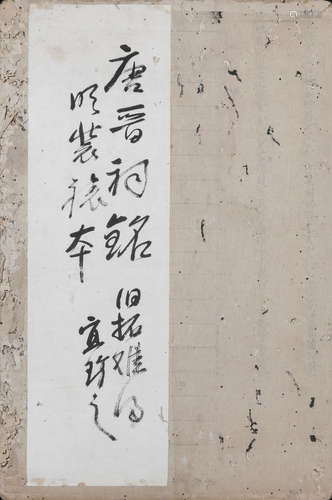 唐晋祠銘
明装裱本
旧拓难得
宜珍之